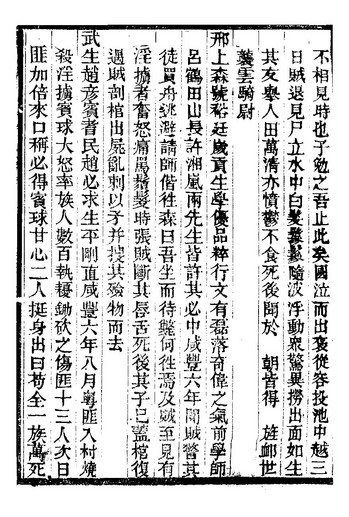 不相見時也子勉之吾止此矣國泣而出褒從容投池中越三
日賊退見尸立水中白髮鬖鬖隨波浮動衆驚異撈出面如生
其友舉人田萬清亦憤鬱不食死後聞於　朝皆得　旌卹世
襲雲騎尉
邢上森號裕廷歲貢生學優品粹行文有磊落奇偉之氣前學師
呂鶴田山長許湘嵐兩先生皆許其必中咸豐六年聞賊警其
徒買舟逃避請師偕往森曰吾坐而待斃何往焉及賊至見有
淫擄者奮怒痛罵鬚髮時張賊斷其唇舌死後其子已蓋棺復
遇賊剖棺出屍亂刺以矛并搜其殮物而去
武生趙彥賓者民趙必求生平剛直咸豐六年八月粵匪入村燒
殺淫擄賓球大怒率族人數百執耰鋤砍之傷匪十三人次日
匪加倍來口稱必得賓球甘心二人挺身出曰苟全一族萬死